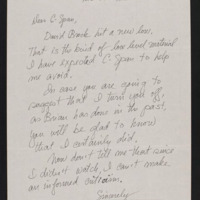 Dear C-Span,
David Brock hit a new low.
That is the kind of low level material
I have expected C-Span to help
me avoid.
In case you are going to
suggest that I turn it off,
as Brian has done in the past,
you will be glad to know
that I certainly did.
Now don't tell me that since
I didn't watch, I can't make
an informed criticism.
Sincerely